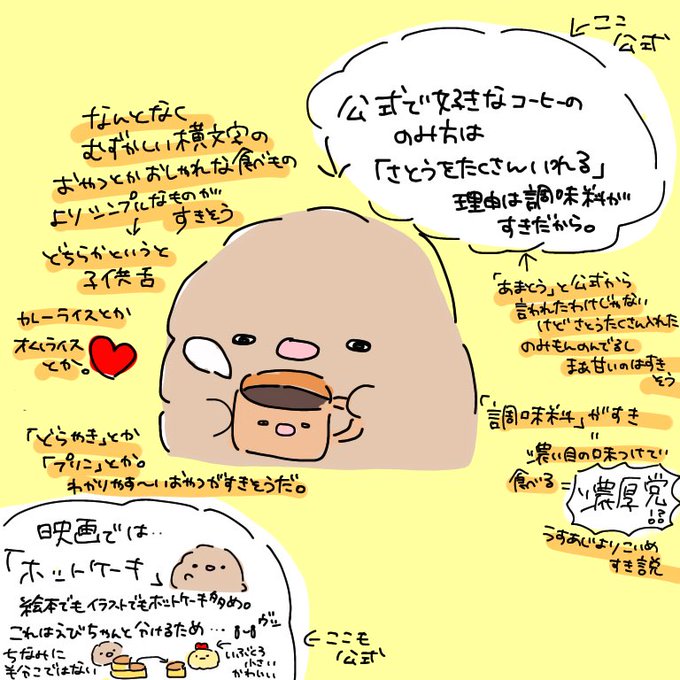 ←ここ
公式
公式で好きなコーヒーの
のみ方は
「さとうをたくさんいれる」
理由は調味料が
すきだから。
なんとなく
むずかしい横文字の
おやつとかおしゃれな食べもの
よりシンプルなものが
すきそう
↓
どちらかというと
子供舌
カレーライスとか
オムライス
とか。
「どらやき」とか
「プリン」とか。
わかりやす〜いおやつがすきそうだ。
↑
「あまとう」と公式から
言われたわけじゃない
けどさとうたくさん入れた
のみもんのんでるし
まあ甘いのはすき
そう
「調味料」がすき
=
濃い目の味つけで
食べる=
濃厚党
!?
うすあじよりこいめ
すき説
映画では‥
「ホットケーキ」
絵本でもイラストでもホットケーキ多め。
これはえびちゃんと分けるため…
ちなみに
半分こではない
いぶとろ
小さい
かわいい
←ここも
公式